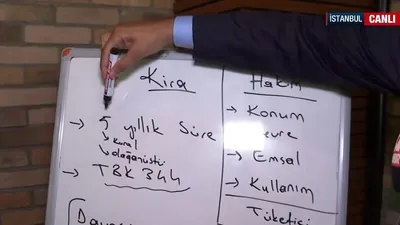 İSTANBUL CANLI
Kira
→ 5 yıllık Süre
↳ kural
↳ olağanüstü
→ TBK 344
Hakim
→ Konum
→ Emsal
→ Kullanım
Tüketici